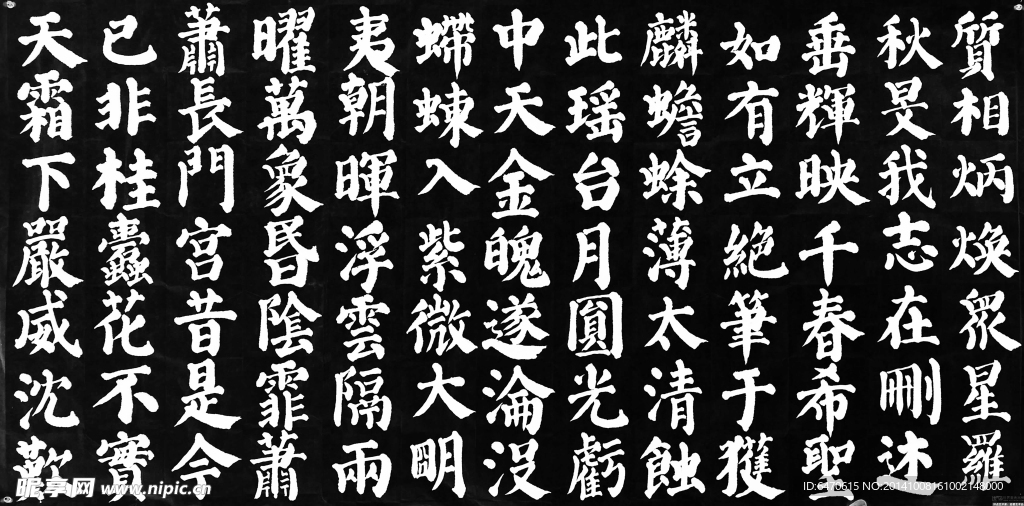 質相炳煥衆星羅
秋旻我志在刪述
垂輝映千春希聖
如有立絕筆于獲
麟蟾蜍薄太清蝕
此瑶台月圓光虧
中天金魄遂淪沒
螮蝀入紫微大明
夷朝暉浮雲隔兩
曜萬象昏陰霏蕭
蕭長門宮昔是今
已非桂蠹花不實
天霜下嚴威沈歎
昵享网 www.nipic.cn
ID:6470515 NO:20141008161002148000